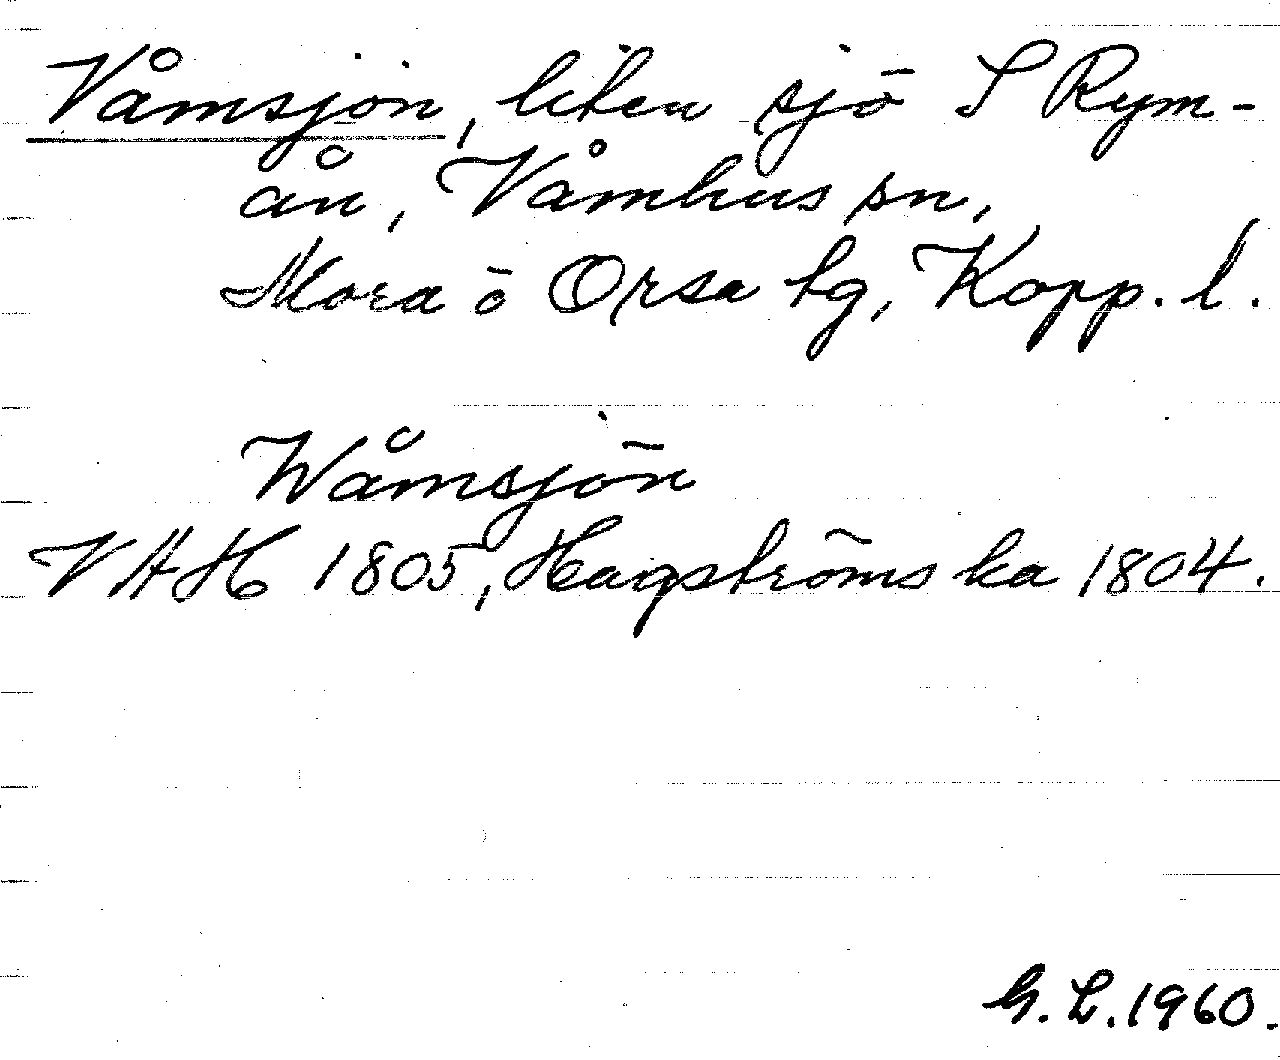 Våmsjön, liten sjö S Rym-
ån, Våmhus sn,
Mora o Orsa tg, Kopp. l.
Wåmsjön
VAH 1805, Hagströms ka 1804.
G. L. 1960.